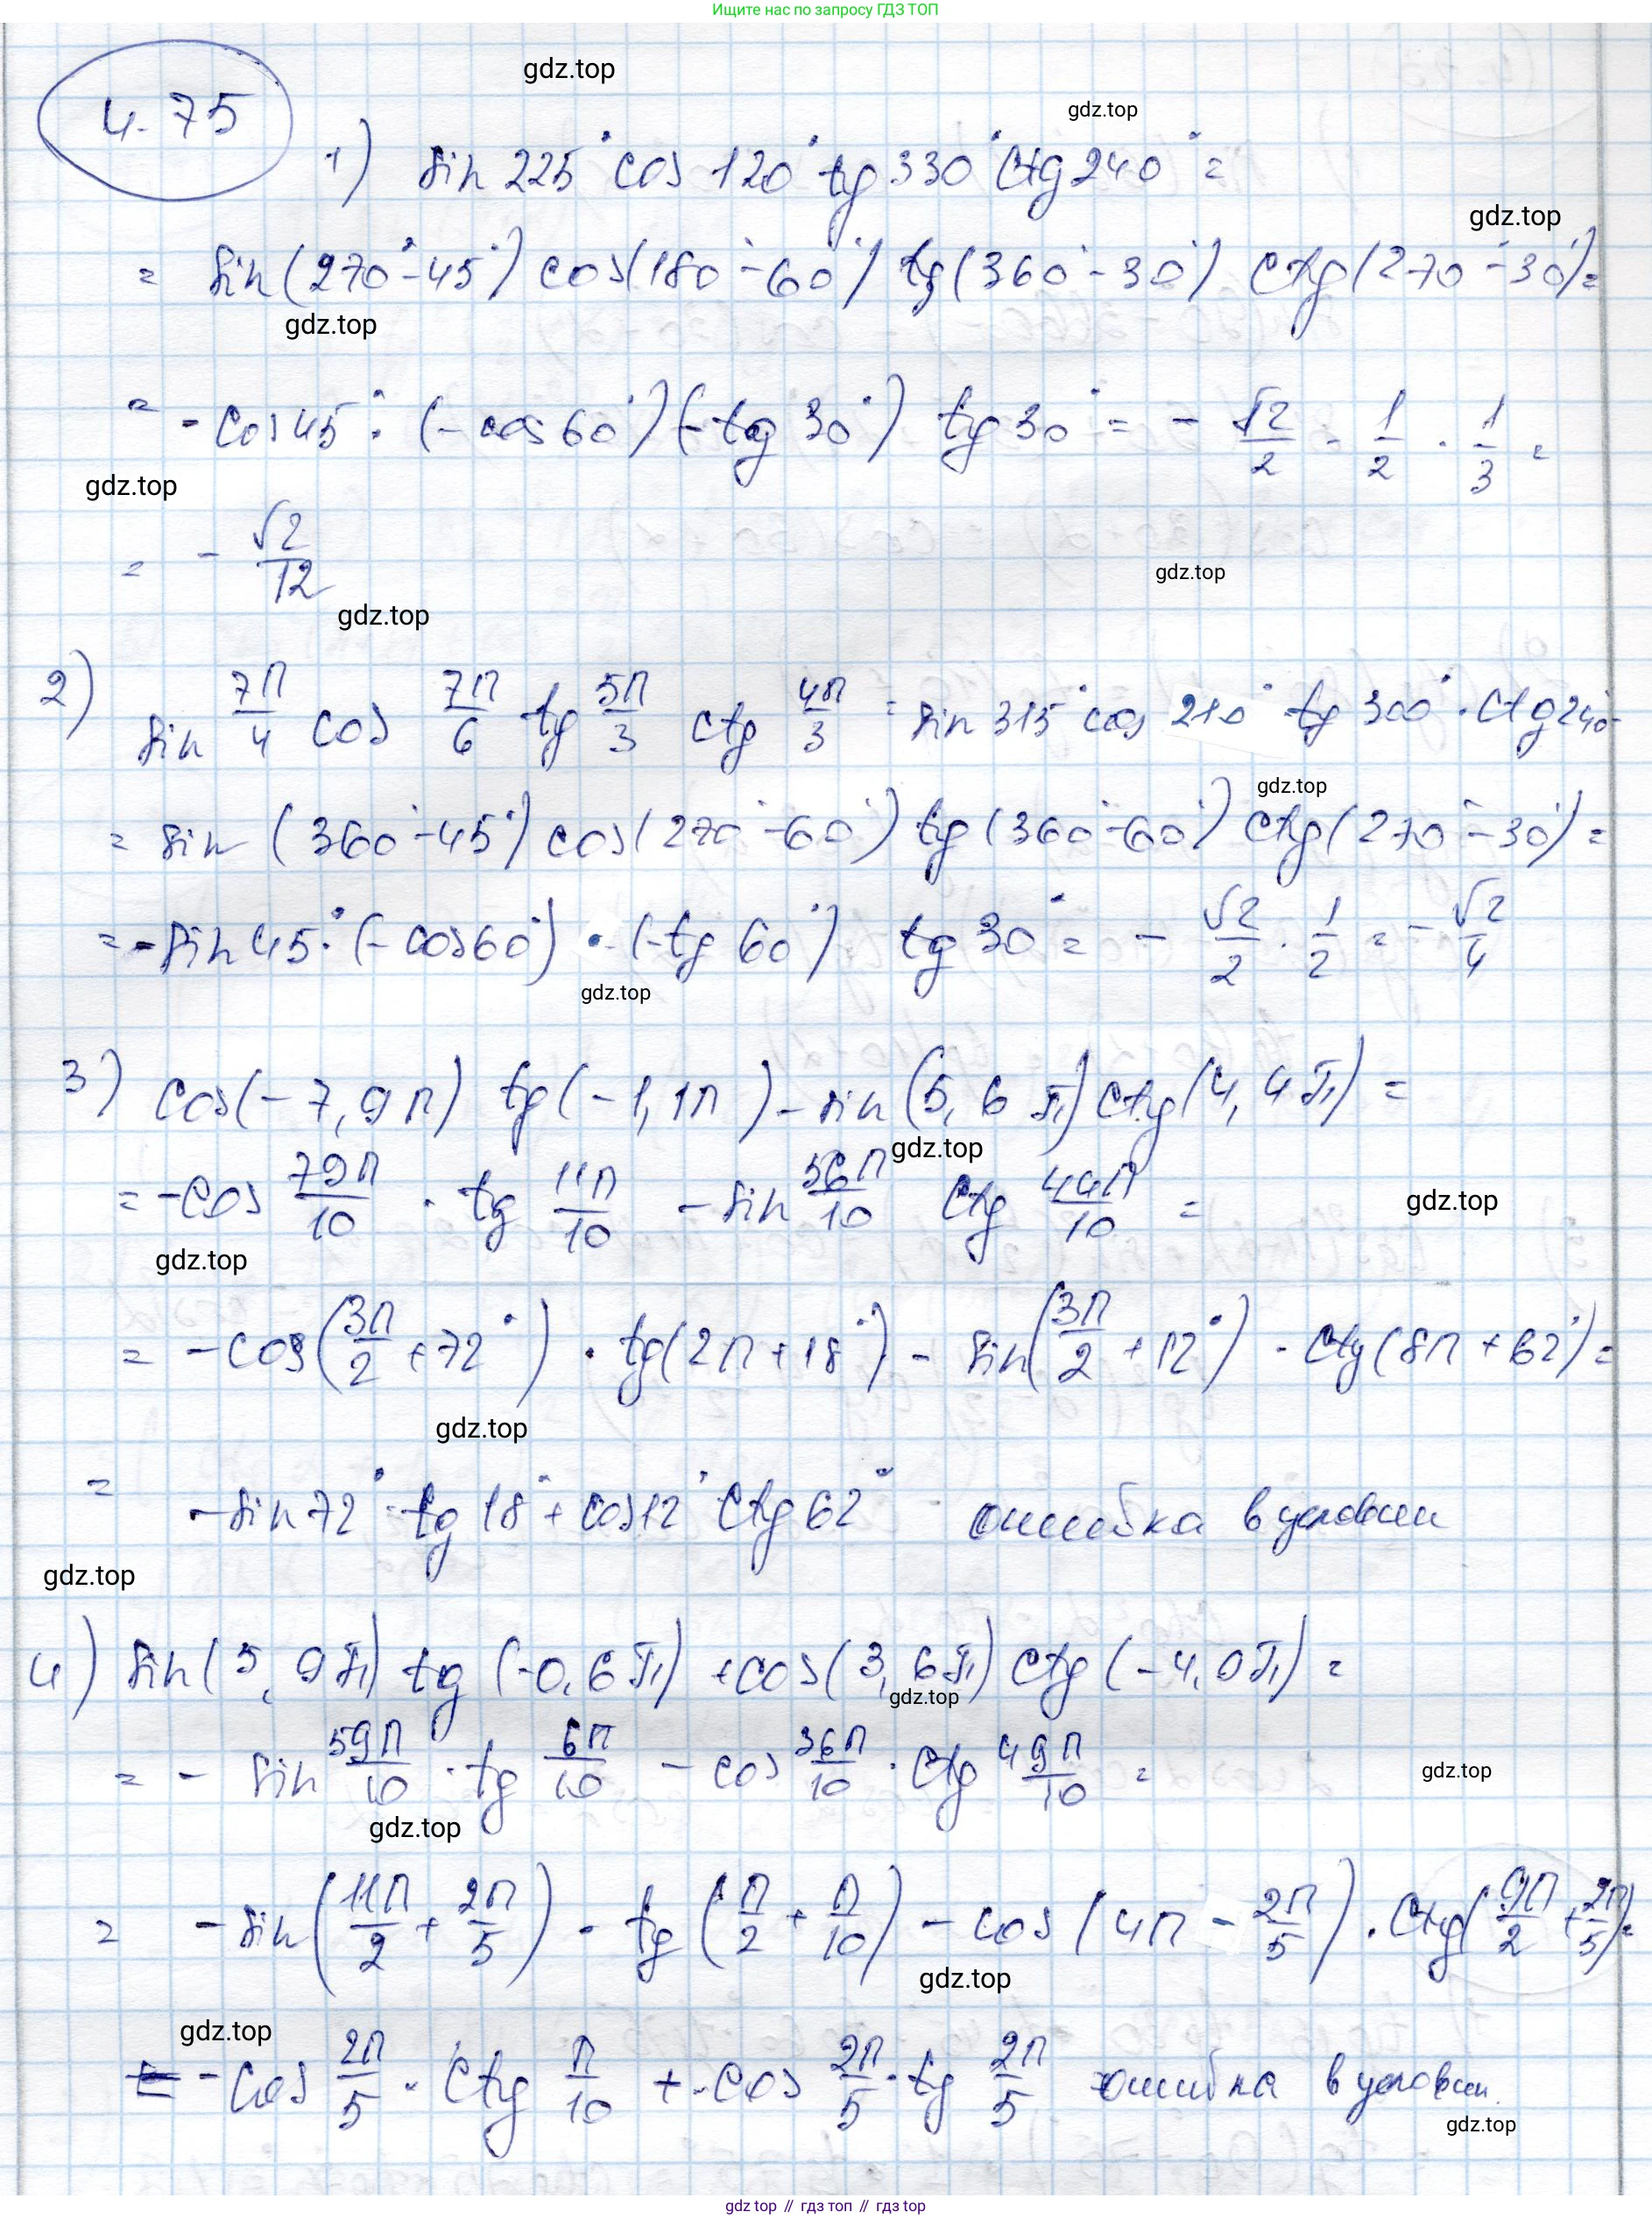 Ищите нас по запросу ГДЗ ТОП
gdz.top
4.75
gdz.top
1) sin 225° cos 120° tg 330° ctg 240° =
gdz.top
= sin (270° - 45°) cos (180° - 60°) tg (360° - 30°) ctg (270° - 30°) =
gdz.top
= - cos 45° · (- cos 60°) (- tg 30°) tg 30° = - √2/2 · 1/2 · 1/3 =
gdz.top
= - √2/12
gdz.top
gdz.top
2) sin 7π/4 cos 7π/6 tg 5π/3 ctg 4π/3 = sin 315° cos 210° tg 300° · ctg 240°
gdz.top
= sin (360° - 45°) cos (270° - 60°) tg (360° - 60°) ctg (270° - 30°) =
= - sin 45° · (- cos 60°) · (- tg 60°) tg 30° = - √2/2 · 1/2 = - √2/4
gdz.top
3) cos (-7,9π) tg (-1,1π) - sin (5,6π) ctg (4,4π) =
gdz.top
= - cos 79π/10 · tg 11π/10 - sin 56π/10 ctg 44π/10 =
gdz.top
gdz.top
= - cos (3π/2 + 72°) · tg (2π + 18°) - sin (3π/2 + 12°) · ctg (8π + 62°) =
gdz.top
= - sin 72° · tg 18° + cos 12° ctg 62° ошибка в условии
gdz.top
4) sin (5,9π) tg (-0,6π) + cos (3,6π) ctg (-4,9π) =
gdz.top
= - sin 59π/10 · tg 6π/10 - cos 36π/10 · ctg 49π/10 =
gdz.top
gdz.top
= - sin (11π/2 + 2π/5) · tg (π/2 + π/10) - cos (4π - 2π/5) · ctg (9π/2 + 2π/5) =
gdz.top
gdz.top
= - cos 2π/5 · ctg π/10 + cos 2π/5 · tg 2π/5 ошибка в условии.
gdz.top
gdz top // гдз топ // гдз top